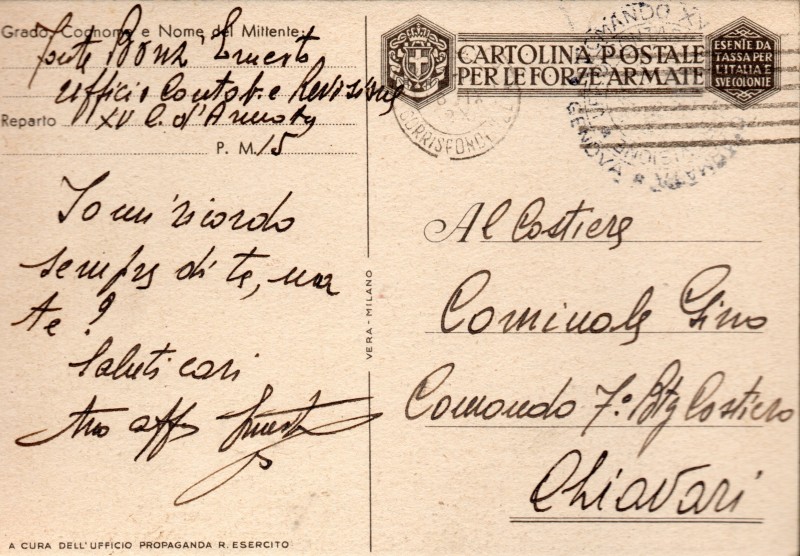 Grado, Cognome e Nome del Mittente:
Ernesto
Ufficio Contab. e Revisione
Reparto XV C. d'Armata
P. M. 15
Io mi ricordo
sempre di te, ma
te?
Saluti cari
tuo aff Ernesto
A CURA DELL'UFFICIO PROPAGANDA R. ESERCITO
VERA - MILANO
CARTOLINA POSTALE
PER LE FORZE ARMATE
ESENTE DA
TASSA PER
L'ITALIA E
SVE COLONIE
COMANDO XV
GENOVA
CORRISPOND
Al Costiere
Cominale Gino
Comando 7° Btg Costiero
Chiavari